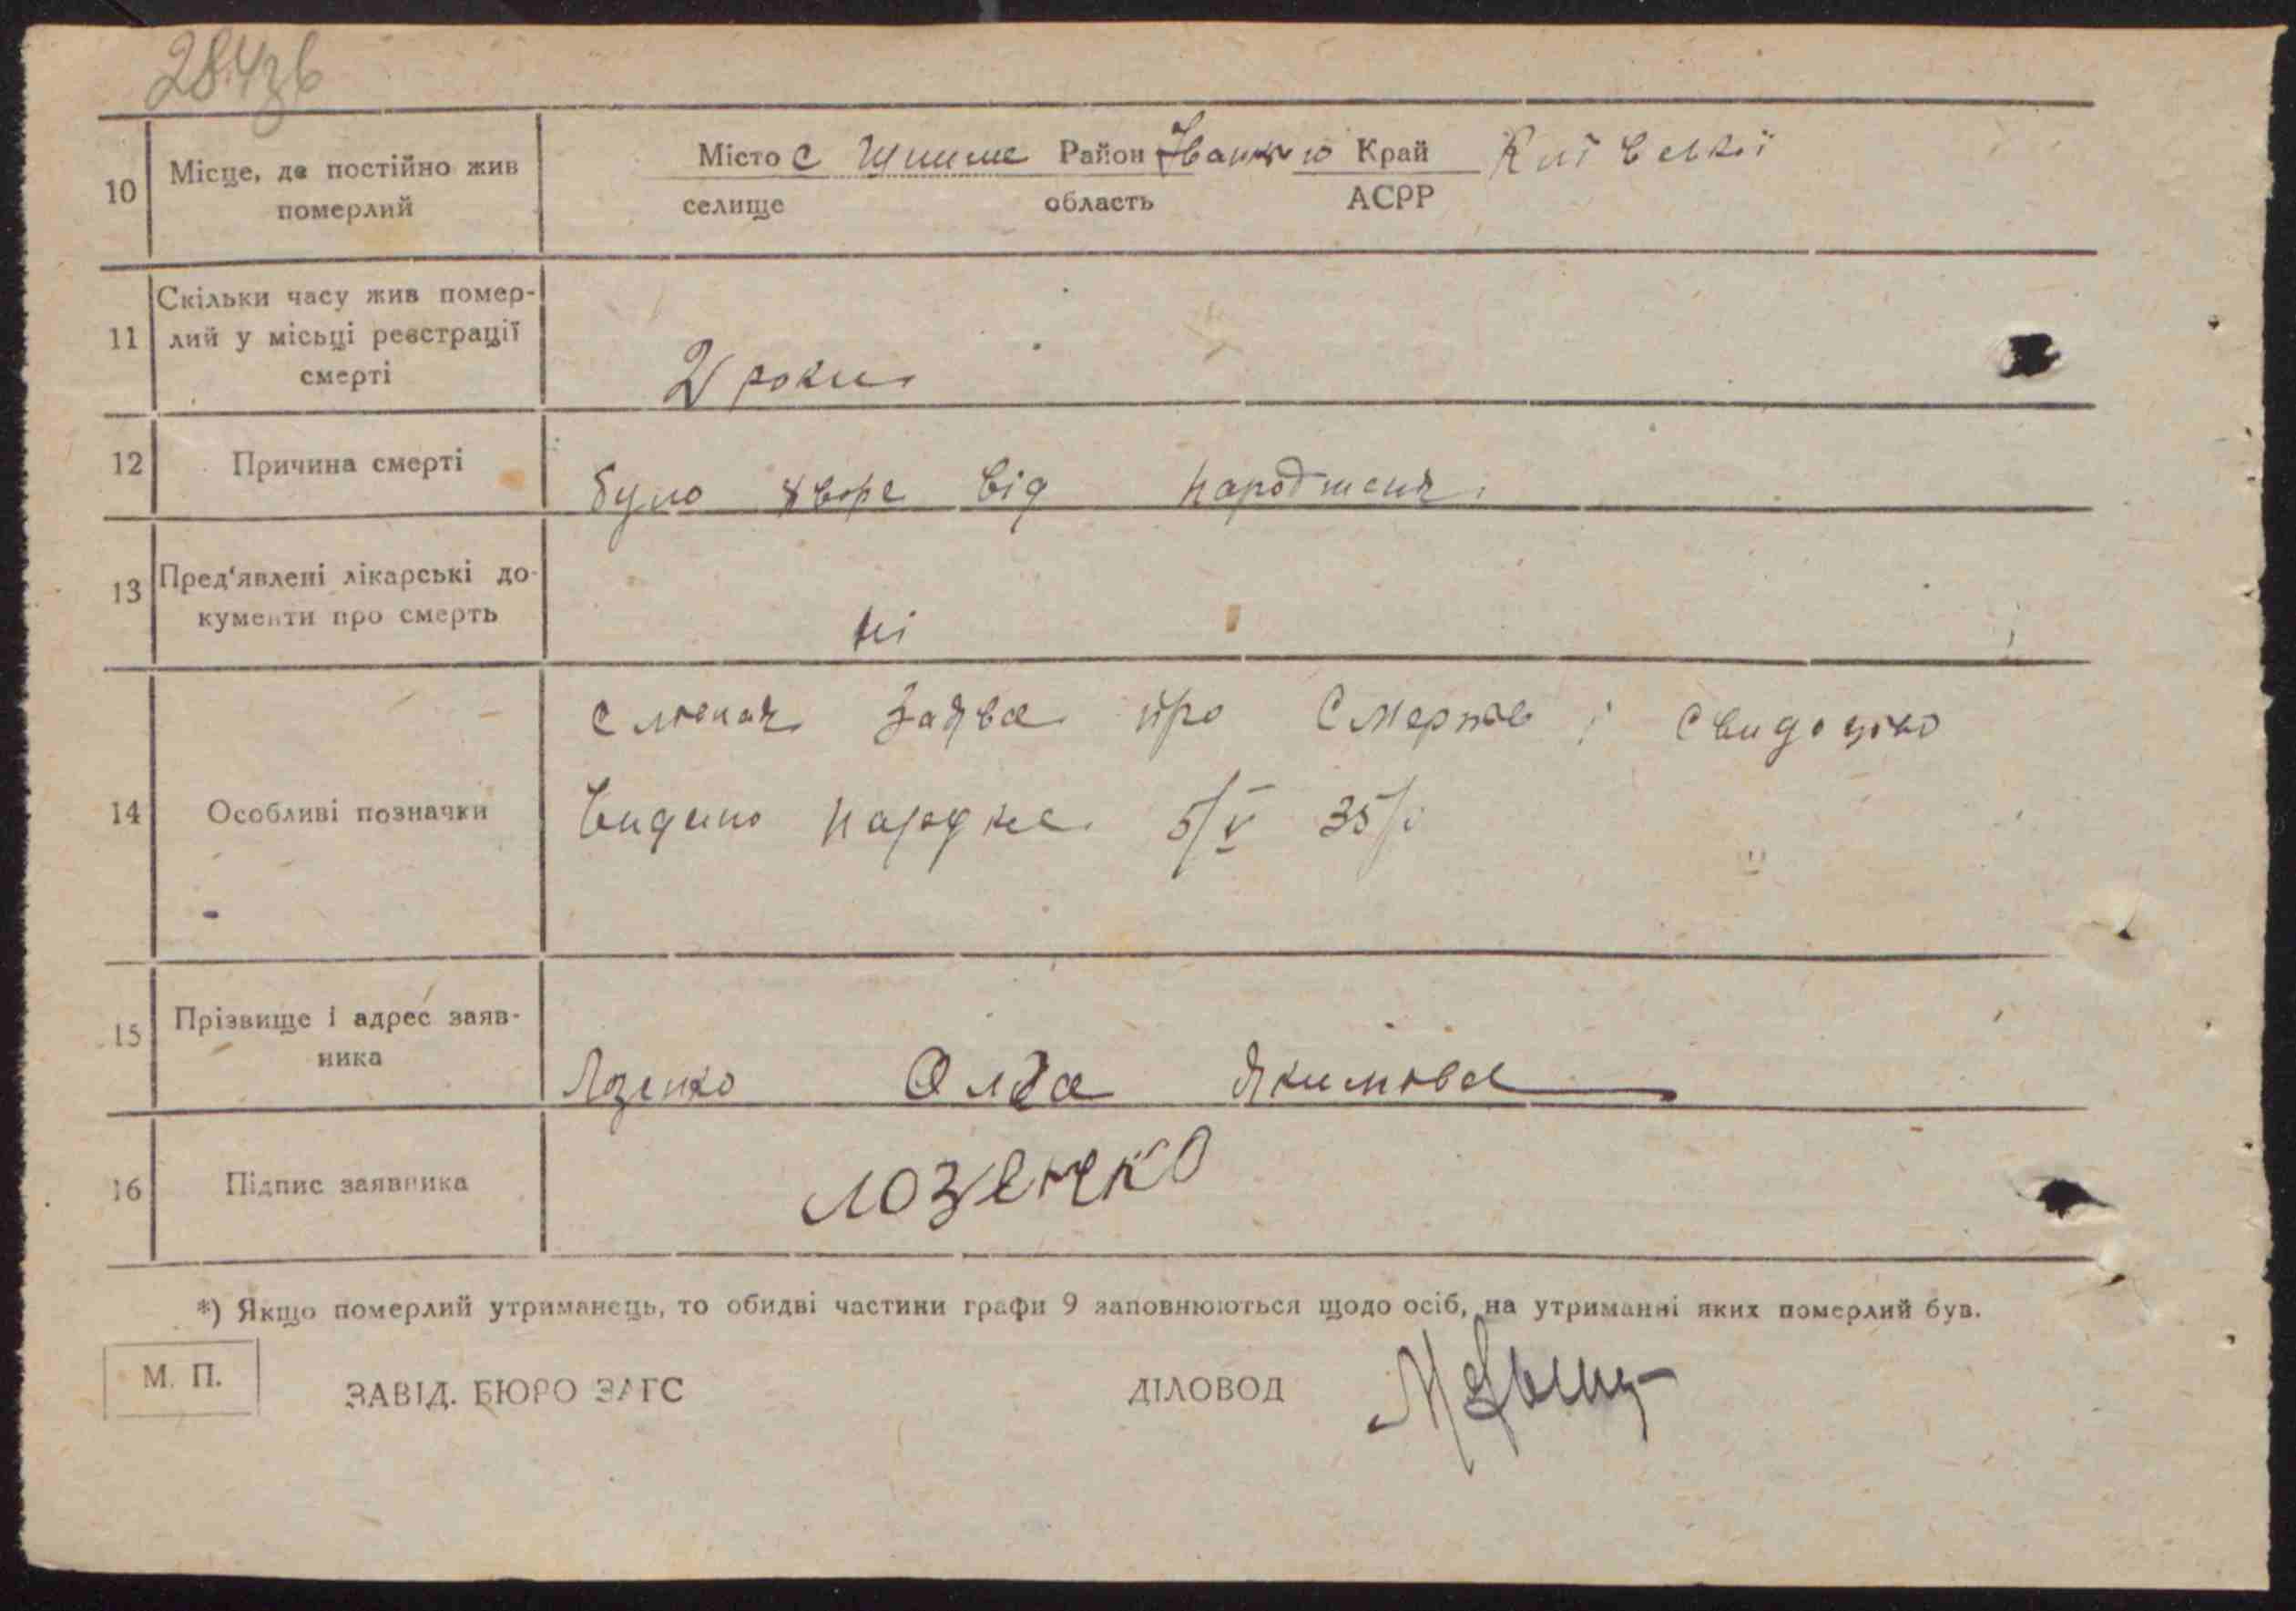 284зв
10 Місце, де постійно жив померлий
Місто с Район Іванків Край Київської
селище область АСРР
11 Скільки часу жив помер-
лий у місьці реєстрації
смерті
2 роки
12 Причина смерті
було хворе від народженя
13 Пред'явлені лікарські до-
кументи про смерть
ні
14 Особливі позначки
заява про смерть і свидоцтво
видано 5/V 35/
15 Прізвище і адрес заяв-
ника
Лозенко Олга Якимова
16 Підпис заявника
Лозенко
*) Якщо померлий утриманець, то обидві частини графи 9 заповнюються щодо осіб, на утриманні яких померлий був.
М. П.
ЗАВІД. БЮРО ЗАГС ДІЛОВОД